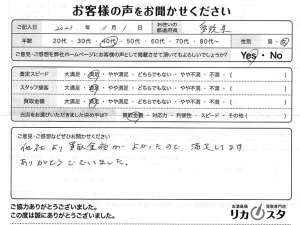 お客様の声をお聞かせください
ご記入日 2023年 2月 1日 お住いの都道府県
年齢 20代・30代・40代・50代・60代・70代・80代〜 性別 男・女
ご意見・ご感想を弊社ホームページにお客様の声として掲載させて頂いてもよろしいでしょうか? Yes・No
査定スピード 大満足・満足・やや満足・どちらでもない・やや不満・不満・( )
スタッフ接客 大満足・満足・やや満足・どちらでもない・やや不満・不満・( )
買取金額 大満足・満足・やや満足・どちらでもない・やや不満・不満・( )
当店をお選びいただきました決め手は? 買取金額・対応力・利便性・スピード・その他( )
ご意見・ご感想などぜひお聞かせください
他社より買取金額がよかったので、満足してます
ありがとうございました。
ご協力ありがとうございました。
この度は誠にありがとうございました。
お酒高価買取専門店
リカスタ